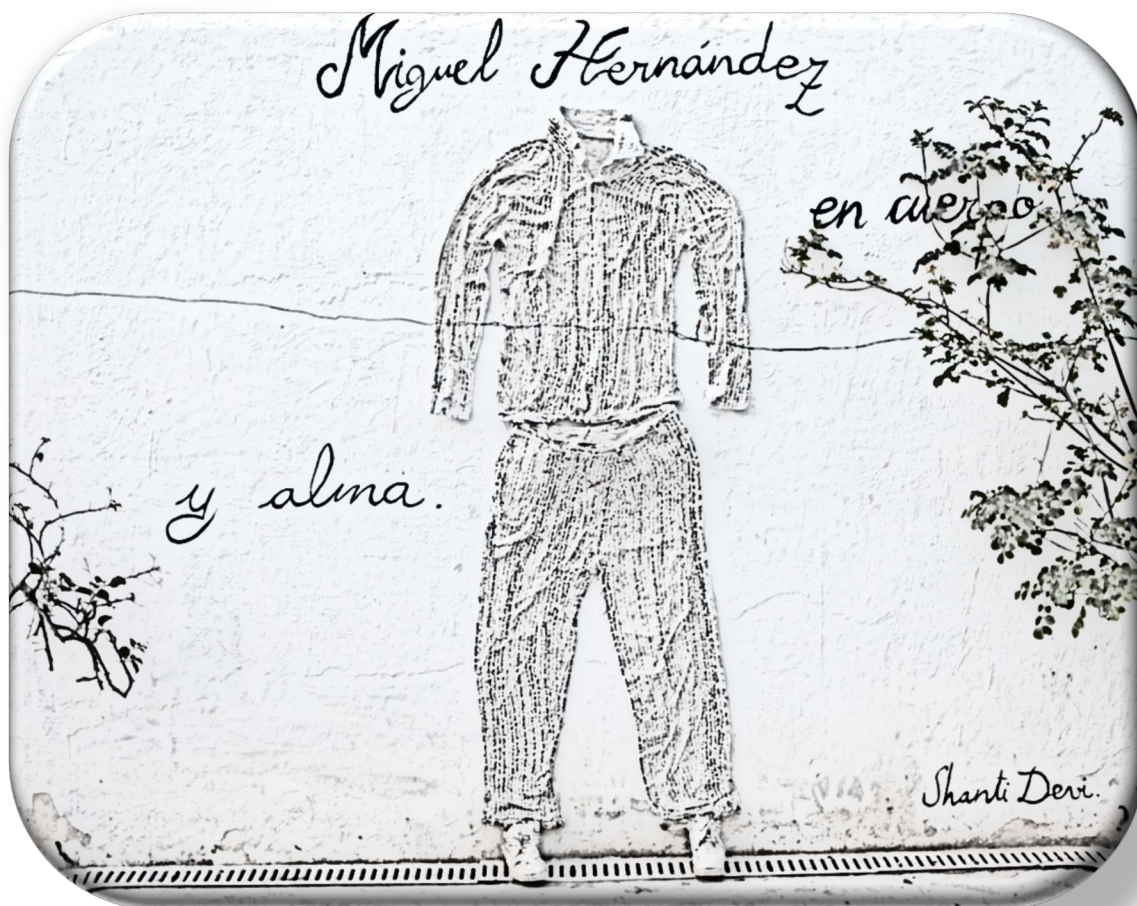 Miguel Hernández
en cuerpo
y alma.
Shanti Devi.